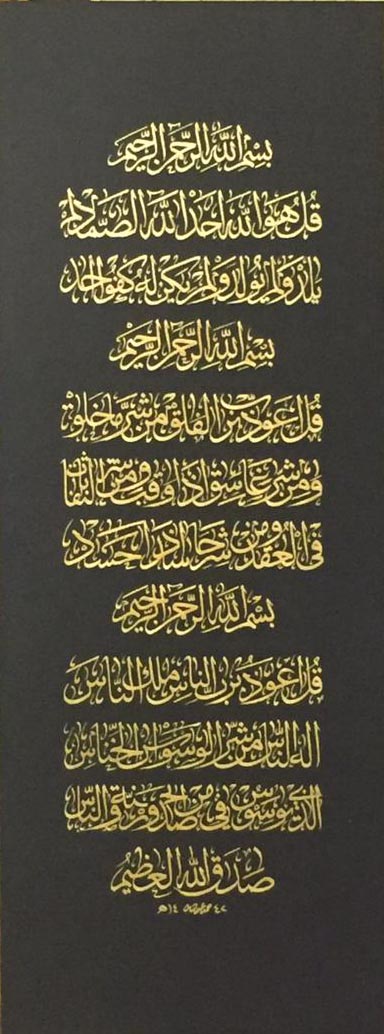 بسم الله الرحمن الرحيم
قل هو الله احد الله الصمد لم
يلد ولم يولد ولم يكن له كفوا احد
بسم الله الرحمن الرحيم
قل اعوذ برب الفلق من شر ما خلق
ومن شر غاسق اذا وقب ومن شر النفاثات
في العقد ومن شر حاسد اذا حسد
بسم الله الرحمن الرحيم
قل اعوذ برب الناس ملك الناس
اله الناس من شر الوسواس الخناس
الذي يوسوس في من الجنة والناس
صدق الله العظيم